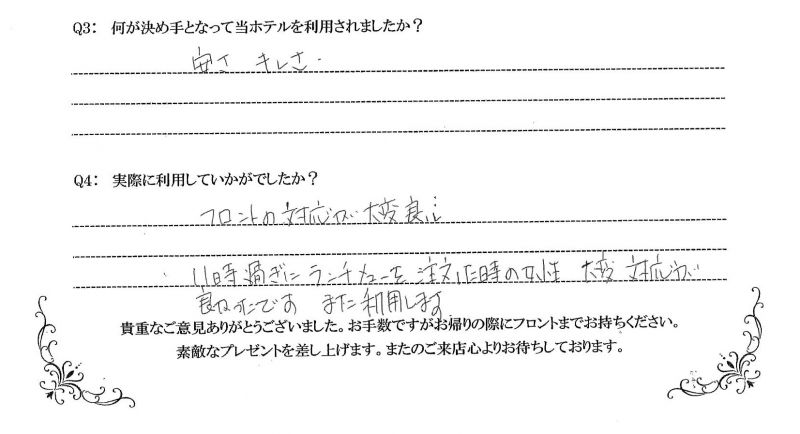 Q3: 何が決め手となって当ホテルを利用されましたか?
安さ キレさ.
Q4: 実際に利用していかがでしたか?
フロントの対応が大変良い
11時過ぎにランチメニューを注文した時の女性 大変 対応が
良かったです また利用します
貴重なご意見ありがとうございました。お手数ですがお帰りの際にフロントまでお持ちください。
素敵なプレゼントを差し上げます。またのご来店心よりお待ちしております。